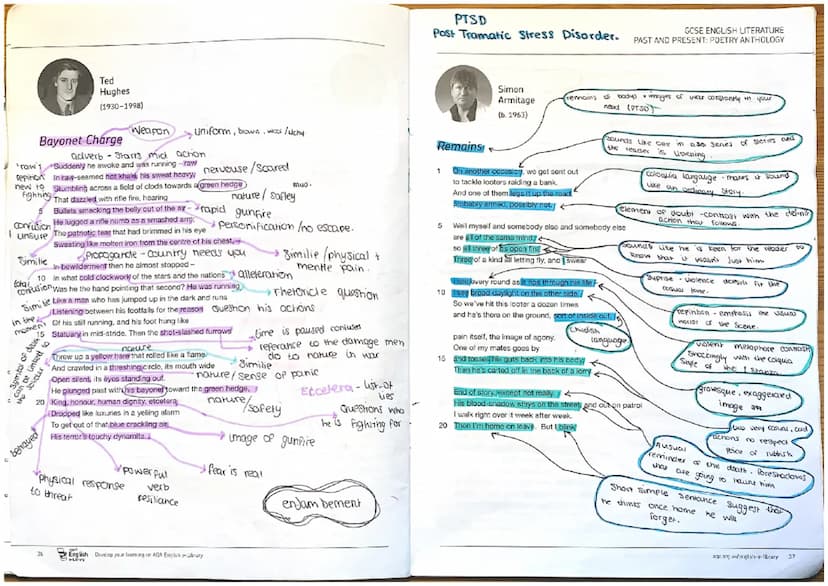 Ted
Hughes
(1930–1998)
Weapon
uniform, brown, wool/itchy
Bayonet Charge
adverb - starts mid action
'raw'
Suddenly he awoke and was running – raw
In raw-seamed hot khaki, his sweat heavy,
nervouse/scared
new to
fighting
Stumbling across a field of clods towards a green hedge
mud
That dazzled with rifle fire, hearing
nature/safley
5 Bullets smacking the belly out of the air –
rapid gunfire
He lugged a rifle numb as a smashed arm;
personification/no escape.
confusion
unsure
The patriotic tear that had brimmed in his eye
Sweating like molten iron from the centre of his chest, –
Similie
propagande - country needs you
Similie/physical +
mentle pain.
In bewilderment then he almost stopped –
10 In what cold clockwork of the stars and the nations
alleteration
total
confusion
Was he the hand pointing that second? He was running
rhetoricle question
Similie
Like a man who has jumped up in the dark and runs
in the
moment
Listening between his footfalls for the reason
question his actions
Of his still running, and his foot hung like
15 Statuary in mid-stride. Then the shot-slashed furrows
time is paused
referance to the damage men
do to nature in war
nature
Threw up a yellow hare that rolled like a flame
Similie
And crawled in a threshing circle, its mouth wide
nature/sense of panic
Open silent, its eyes standing out.
He plunged past with his bayonet toward the green hedge,
Etcetera - list of
ties
20 King, honour, human dignity, etcetera
nature/
safely
Dropped like luxuries in a yelling alarm
Questions who
he is fighting for
To get out of that blue crackling air
image of gunfire
His terror's touchy dynamite.
fear is real
physical response
to threat
powerful
verb
resiliance
enjambement
36
Develop your learning on AQA English e-Library
PTSD
Post Tramatic Stress Disorder.
GCSE ENGLISH LITERATURE
PAST AND PRESENT: POETRY ANTHOLOGY
Simon
Armitage
(b. 1963)
remains of bodys + images of war constantly in your
head (PTSD)
Remains
sounds like one in a series of stories and
the reader is listening.
1 On another occasion, we get sent out
to tackle looters raiding a bank.
coloquial language - makes it sound
like an ordinary story.
And one of them legs it up the road,
Probably armed, possibly not.
element of doubt - contrasts with the definite
action they follows.
5 Well myself and somebody else and somebody else
are all of the same mind,
so all three of us open fire.
Sounds like he is keen for the reader to
know that it wasnt just him
Three of a kind all letting fly, and I swear
I see every round as it rips through his life –
suprise - violence
casual tone.
10 I see broad daylight on the other side.
So we've hit this looter a dozen times
repetition - emphasis the
horror of the scene.
and he's there on the ground, sort of inside out,
childish
language
pain itself, the image of agony.
violent metaphore contrasts
shockingly with the coloquial
style of the 1 stanza
One of my mates goes by
15 and tosses his guts back into his body.
Then he's carted off in the back of a lorry.
grovesque, exaggerated
image
End of story, except not really.
very casual, cold
actions no respect
piece of rubbish
His blood-shadow stays on the street, and out on patrol
I walk right over it week after week.
20 Then I'm home on leave. But I blink
reminder of the death. foreshadows
that are going to haunt him
Short simple sentance suggest that
he thinks once home he will
forget.
aqa.org.uk/english-e-library 37